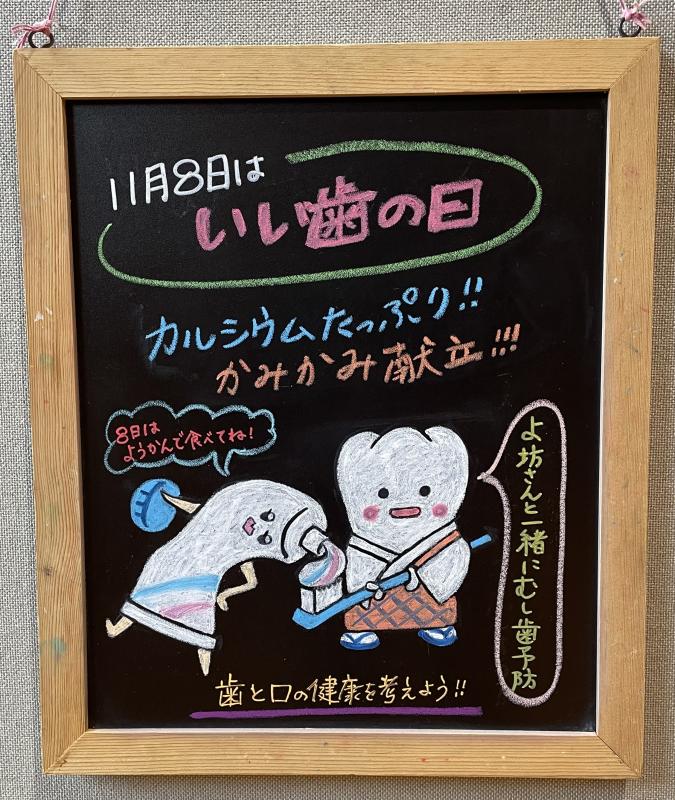 11月8日は
いい歯の日
カルシウムたっぷり!!
かみかみ献立!!!
8日は
ようかんで食べてね!
よ坊さんと一緒にむし歯予防
歯と口の健康を考えよう!!